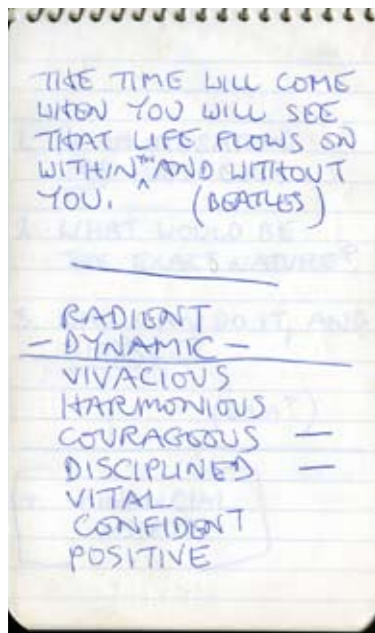 THE TIME WILL COME
WHEN YOU WILL SEE
THAT LIFE FLOWS ON
WITHIN AND WITHOUT
YOU. (BEATLES)
RADIENT
- DYNAMIC -
VIVACIOUS
HARMONIOUS
COURAGEOUS —
DISCIPLINED —
VITAL
CONFIDENT
POSITIVE